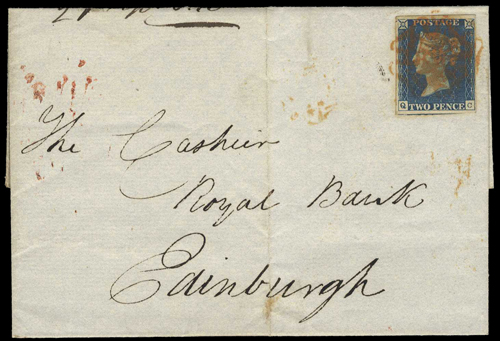 POSTAGE
TWO PENCE
The Cashier
Royal Bank
Edinburgh